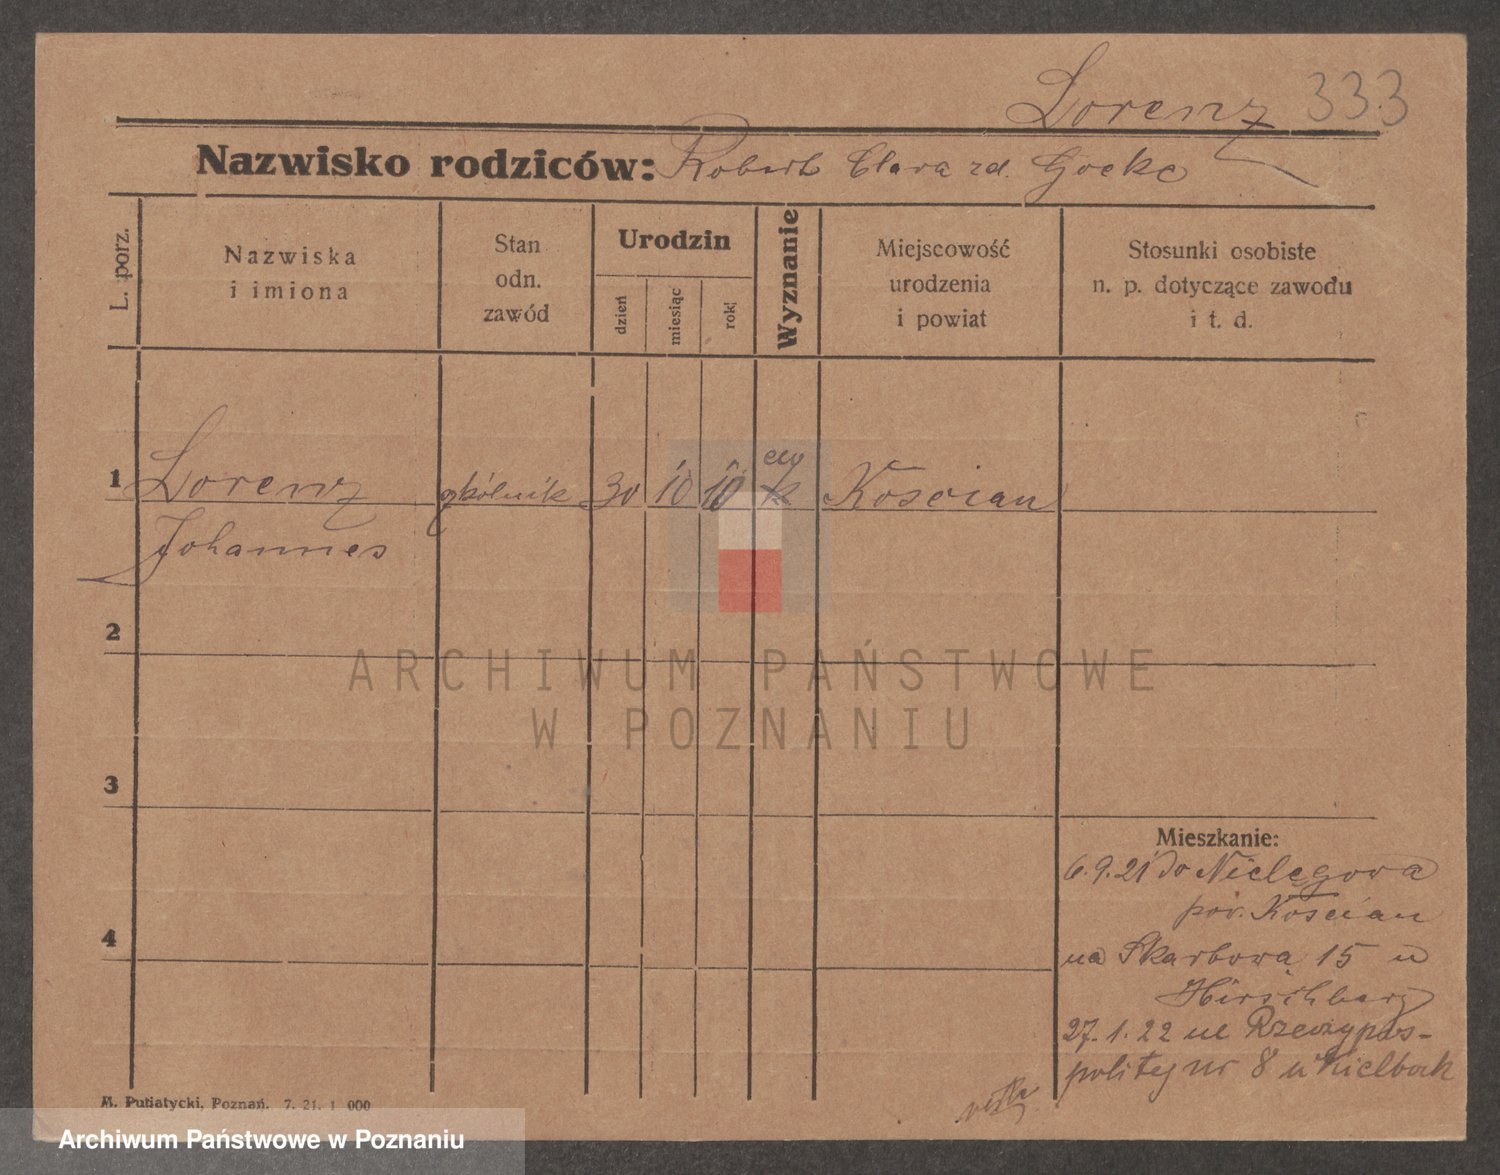 Lorenz 333
Nazwisko rodziców: Robert Clara zd. Goeke
L. porz.
Nazwiska
i imiona
Stan
odn.
zawód
Urodzin
dzień
miesiąc
rok
Wyznanie
Miejscowość
urodzenia
i powiat
Stosunki osobiste
n. p. dotyczące zawodu
i t. d.
ew
1 Lorenz 30 10 10 k Kościan
Johannes
2
ARCHIWUM PAŃSTWOWE
W POZNANIU
3
Mieszkanie:
6.9.21 do Nielęgowa
pow. Kościan
4
na Skarbowa 15 u
Hirschberg
27.1.22 ul Rzeczypos-
politej nr 8 u Kielbock
M. Putiatycki, Poznań. 7. 21. 1 000
Archiwum Państwowe w Poznaniu